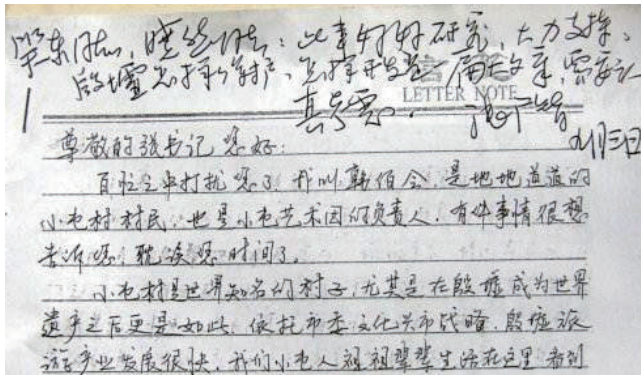 同志，晓然同志：此事好好研究，大力支持。
殷墟怎样保护、怎样开发是一篇大文章，需要认
LETTER NOTE
真考虑。
2月3日
尊敬的张书记您好：
百忙之中打扰您了，我叫韩佰令，是地地道道的
小屯村村民，也是小屯艺术团的负责人，有件事情很想
告诉您，耽误您时间了。
小屯村是世界知名的村子，尤其是在殷墟成为世界
遗产之后更是如此，依托市委文化兴市战略，殷墟旅
游产业发展很快，我们小屯人祖祖辈辈生活在这里，看到